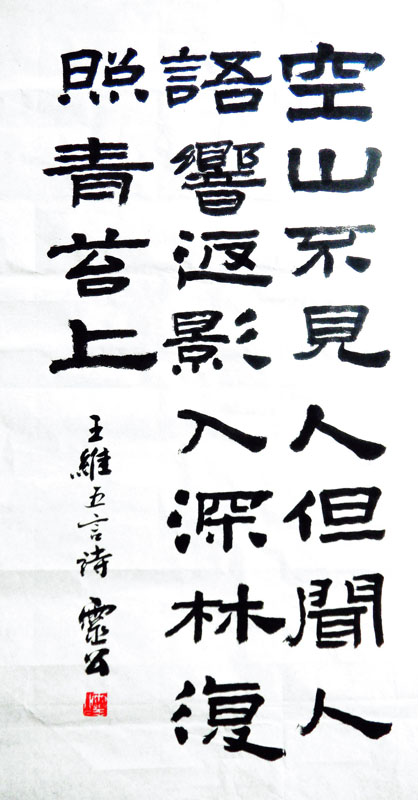 空山不見人但聞人
語響返影入深林復
照青苔上
王維五言詩 靈公